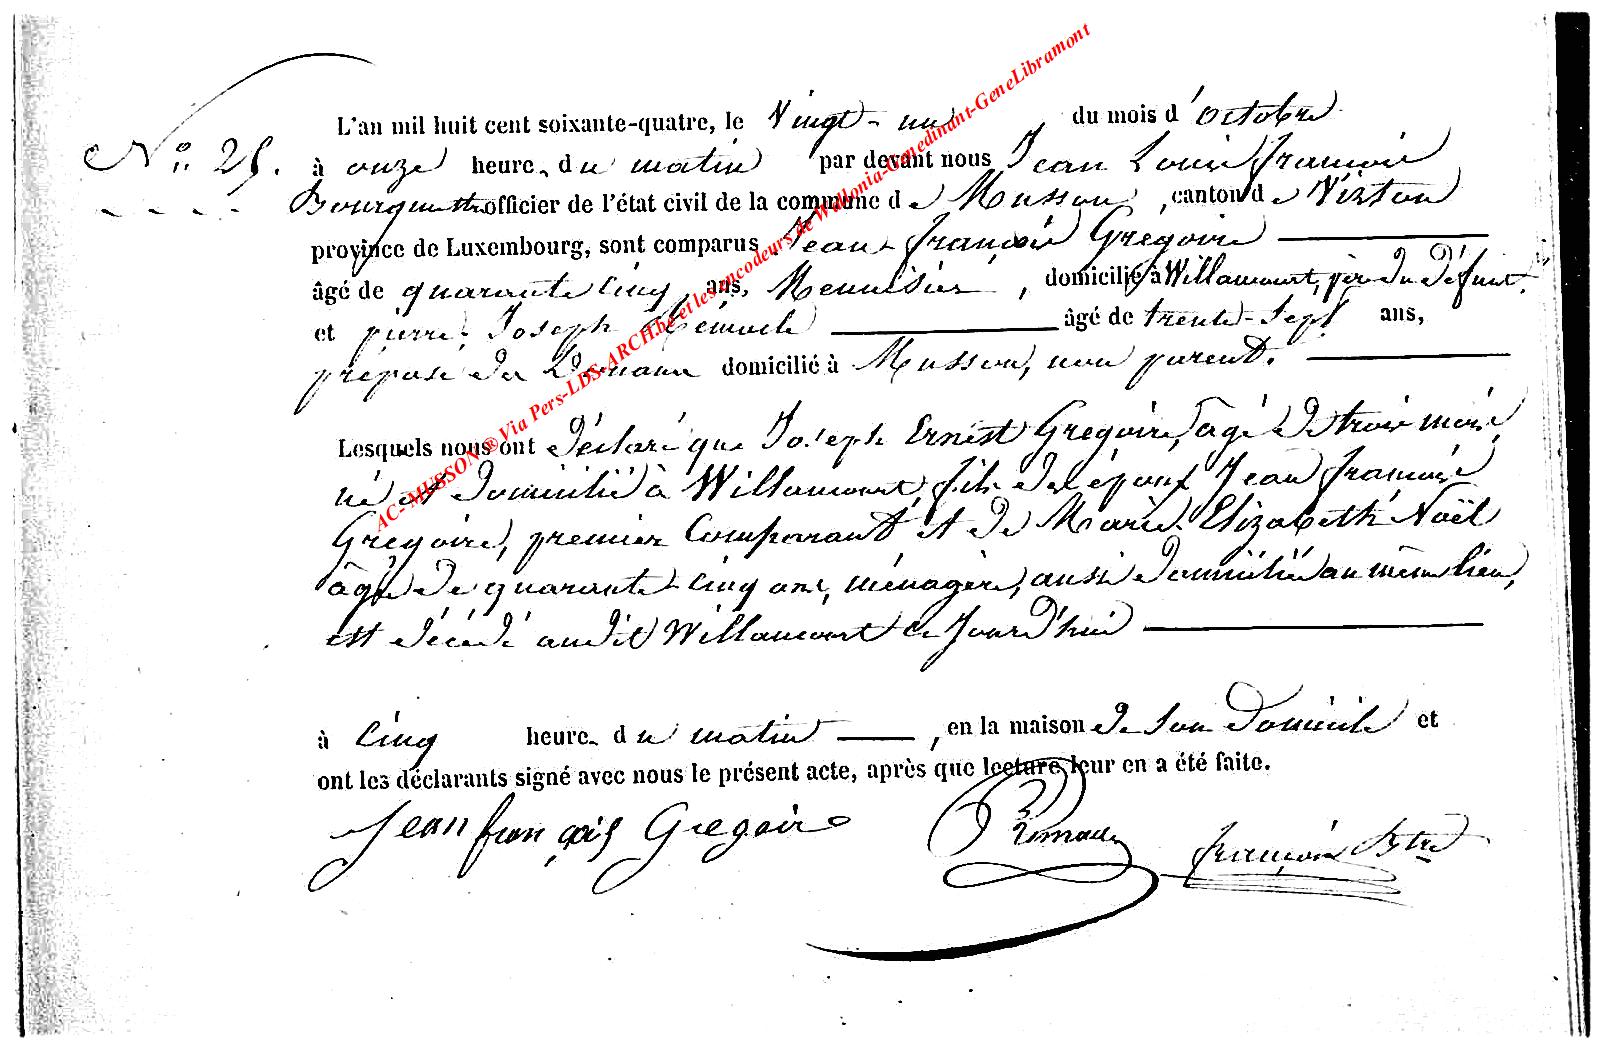 L'an mil huit cent soixante-quatre, le Vingt-un du mois d'octobre
N° 25. à onze heure du matin par devant nous Jean Louis françois
Bourguette officier de l'état civil de la commune de Musson, canton de Virton
province de Luxembourg, sont comparus Jean-françois Grégoire
âgé de quarante cinq ans, Menuisier, domicilié à Willancourt, père du défunt,
et pierre-Joseph âgé de trente-sept ans,
préposé des Douane domicilié à Musson, non parent.
Lesquels nous ont déclaré que Joseph Ernest Gregoire, âgé de trois mois,
né et domicilié à Willancourt, fils des époux Jean françois
Gregoire, premier Comparant et de Marie Elizabeth Noël
âgée de quarante-cinq ans, ménagère, aussi domiciliée au même lieu,
est décédé audit Willancourt ce Jourd'hui
à Cinq heure du matin, en la maison de son Domicile et
ont les déclarants signé avec nous le présent acte, après que lecture leur en a été faite.
Jean françois Gregoire françois Btte
AC- MUSSON ® Via Pers-LDS-ARCH.be et les encodeurs de Wallonia-Genedinant-GeneLibramont